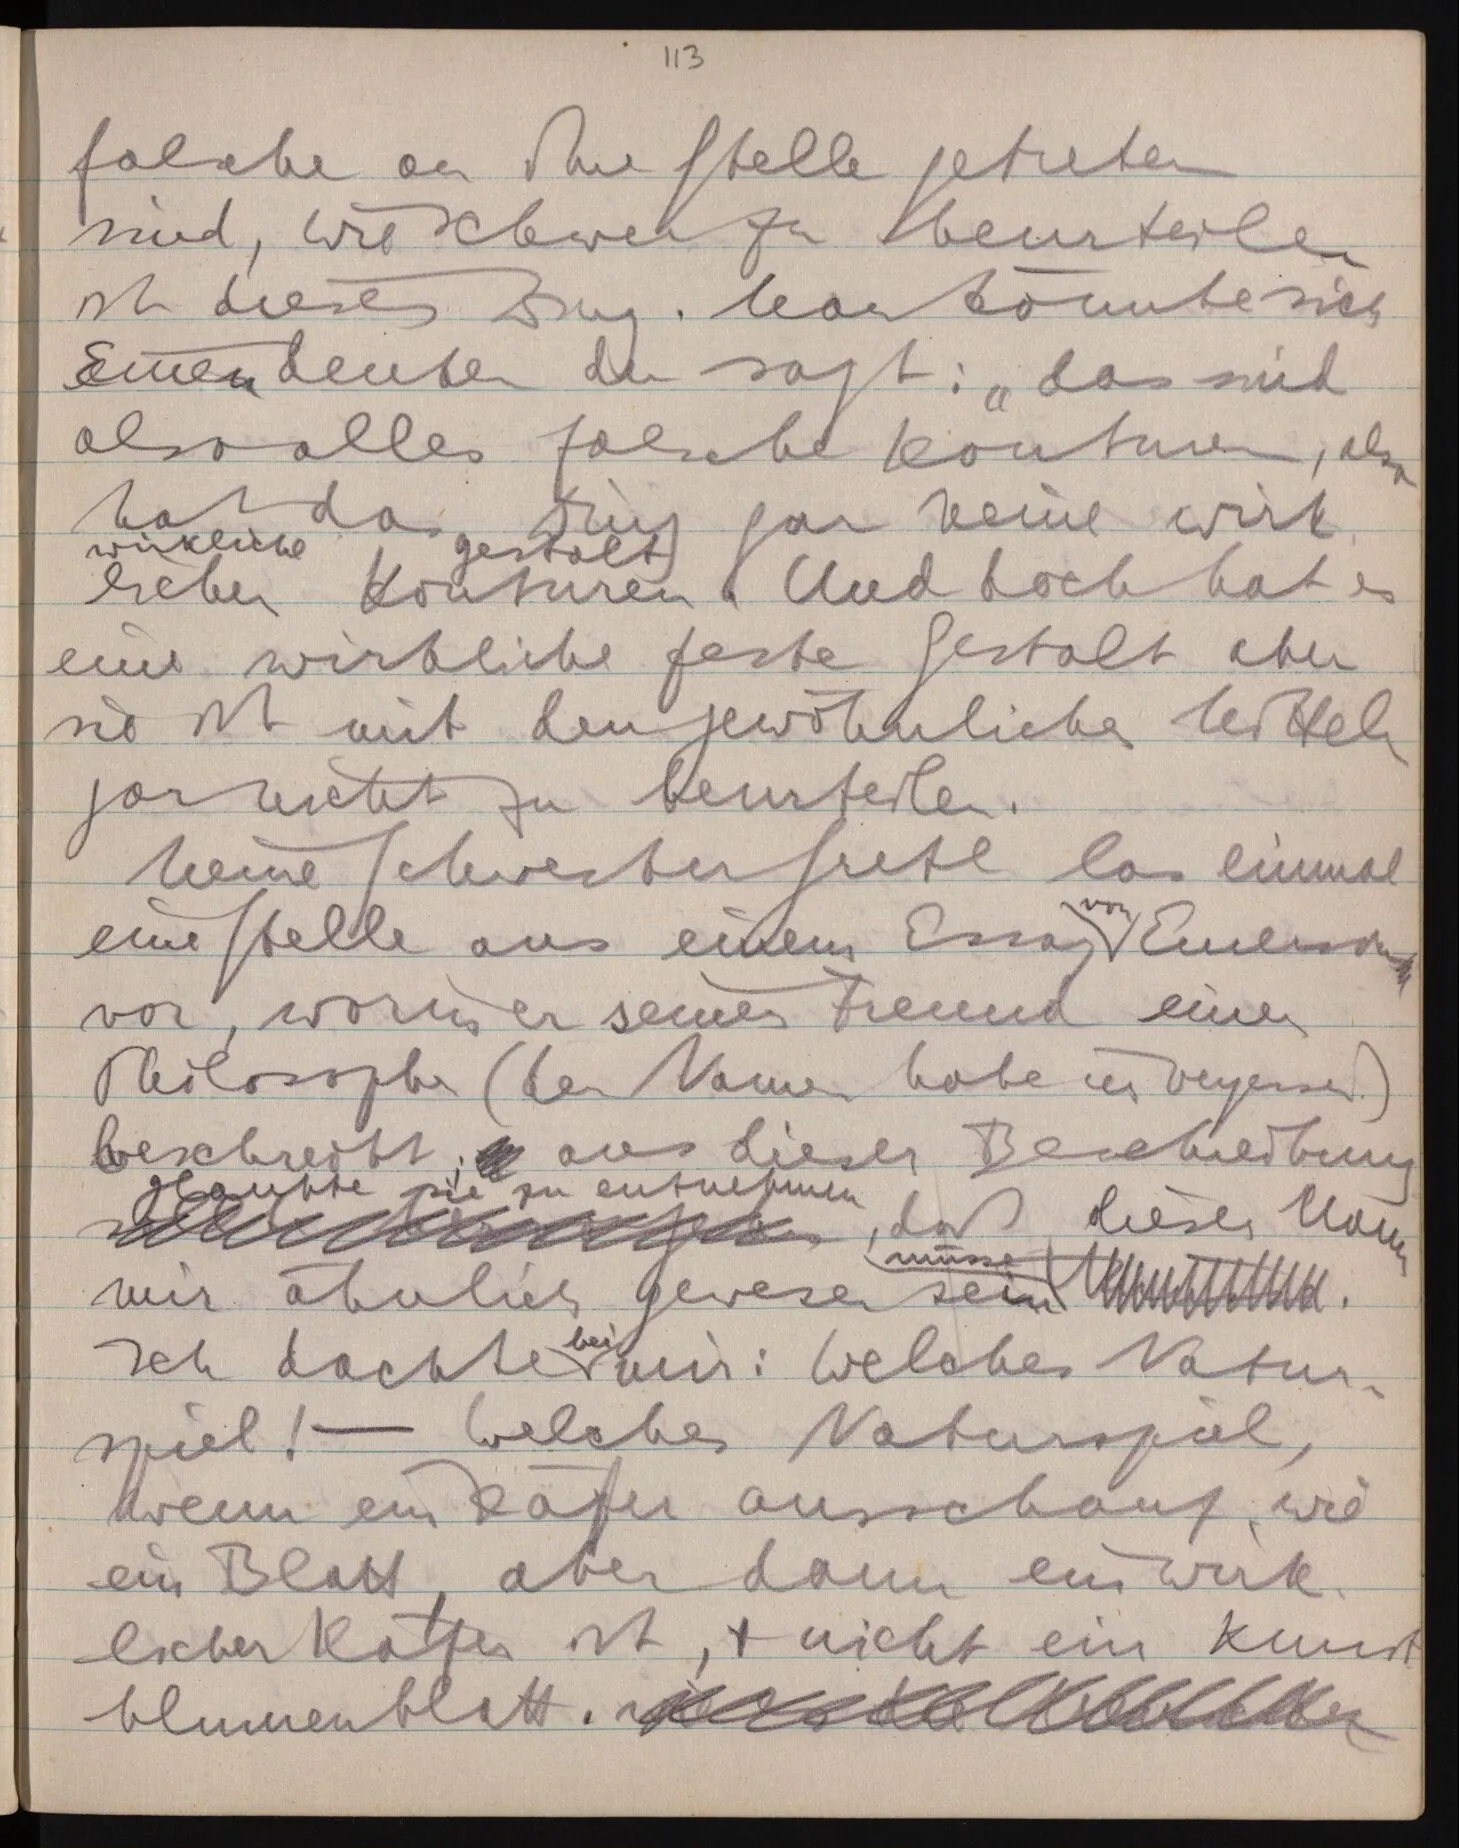 113
falsche an Ihre Stelle getreten
sind, wie schwer zu beurteilen
ist dieses Ding. Man könnte sich
Einen denken der sagt: „das sind
also alles falsche Konturen, also
hat das Ding gar keine wirk
wirkliche gestalt
lichen Konturen. Und doch hat es
eine wirkliche feste Gestalt aber
sie ist mit den gewöhnlichen Mitteln
gar nicht zu beurteilen.
Meine Schwester Gretl las einmal
eine Stelle aus einem Essay von Emerson
vor, worin er seinen Freund einen
Philosophen (den Namen habe ich vergessen)
beschreibt; aus dieser Beschreibung
glaubte sie zu entnehmen
, daß dieser Mann
müsse
mir ähnlich gewesen sein.
Ich dachte bei mir: Welches Natur-
spiel! — Welches Naturspiel,
wenn ein Käfer ausschaut, wie
ein Blatt, aber dann ein wirk-
licher Käfer ist, + nicht ein Kunst
blumenblatt.